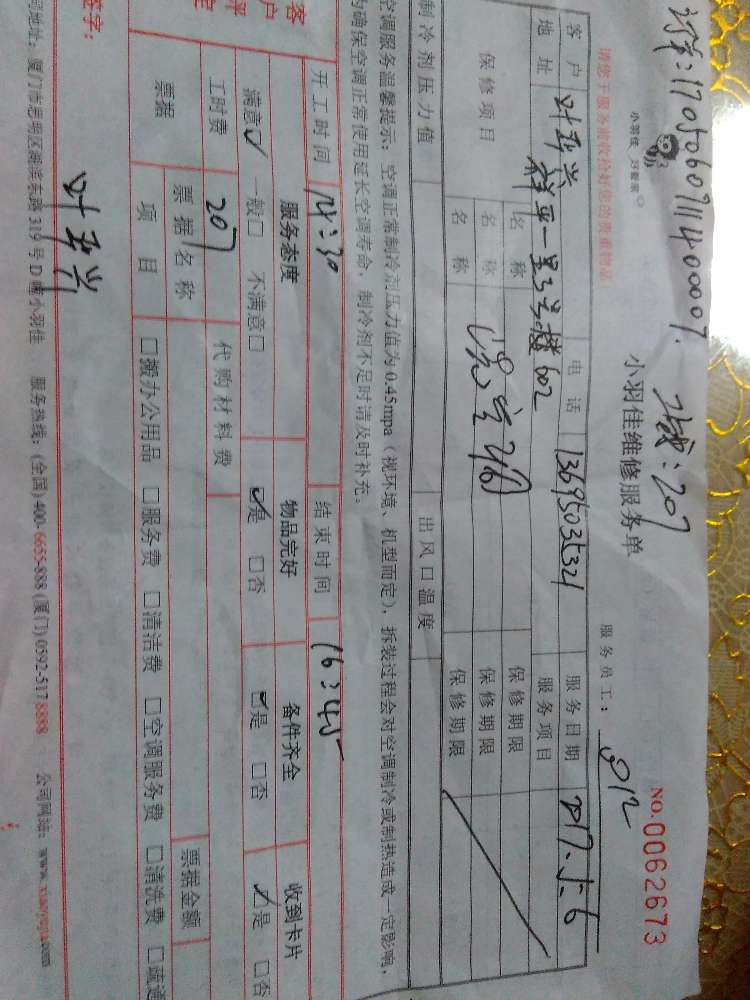 订单:1705060711400007.
工费:207
小羽佳 好管家
小羽佳维修服务单
NO.0062673
请您于服务前收拾好您的贵重物品
服务员工: 912
客户 叶乖兴 电话 13695035321 服务日期 2017.5.6
地址 祥平一里3号楼602 服务项目
保修项目 名称 保修期限
名称 保修期限
名称 保修期限
制冷剂压力值 出风口温度
空调服务温馨提示:空调正常制冷剂压力值为0.45mpa(视环境、机型而定),拆装过程会对空调制冷或制热造成一定影响,
为确保空调正常使用延长空调寿命,制冷剂不足时请及时补充。
开工时间 14:30 结束时间 16:45
客户评定 服务态度 物品完好 备件齐全 收到卡片
满意☑ 一般□ 不满意□ ☑是 □否 ☑是 □否 ☑是 □否
工时费 207 代购材料费
票据 票据名称 票据金额
项目 □搬办公用品 □服务费 □清洁费 □空调服务费 □清洗费 □疏通
签字: 叶乖兴
部地址:厦门市思明区湖滨东路319号D幢小羽佳 服务热线:(全国)400-6655-888 (厦门)0592-517 8888 公司网站:www.xiaoyujia.com